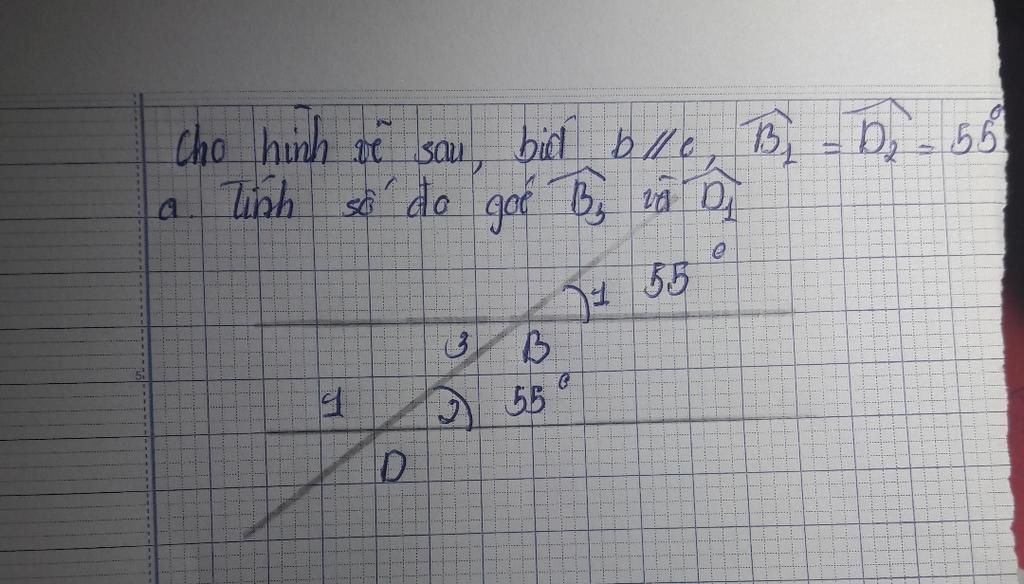 Cho hình vẽ sau, biết b // c, B̂₁ = D̂₂ = 55°
a. Tính số đo góc B̂₃ và D̂₁
1 55°
3 B
1 2 55°
D
5